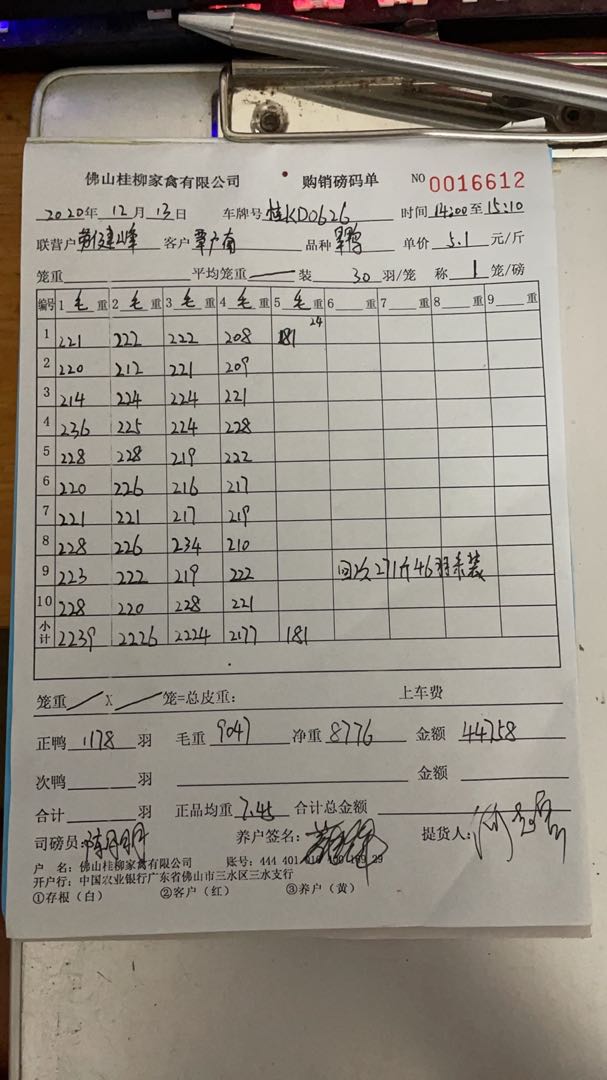 佛山桂柳家禽有限公司 购销磅码单 NO 0016612
2020年 12月 13日 车牌号 桂KD0626 时间 14:00 至 15:10
联营户 客户 覃广南 品种 单价 5.1 元/斤
笼重 平均笼重 — 装 30 羽/笼 称 1 笼/磅
编号 1 毛 重 2 毛 重 3 毛 重 4 毛 重 5 毛 重 6 重 7 重 8 重 9 重
1 221 222 222 208 181 24
2 220 212 221 209
3 214 224 224 221
4 236 225 224 228
5 228 228 219 222
6 220 226 216 217
7 221 221 217 219
8 228 226 234 210
9 223 222 219 222 回次271斤46羽未装
10 228 220 228 221
小计 2239 2226 2224 2177 181
笼重 / X / 笼=总皮重: 上车费
正鸭 1178 羽 毛重 9047 净重 8776 金额 44758
次鸭 羽 金额
合计 羽 正品均重 7.45 合计总金额
司磅员: 养户签名: 提货人:
户 名: 佛山桂柳家禽有限公司 账号: 444 401
开户行: 中国农业银行广东省佛山市三水区三水支行
①存根（白） ②客户（红） ③养户（黄）